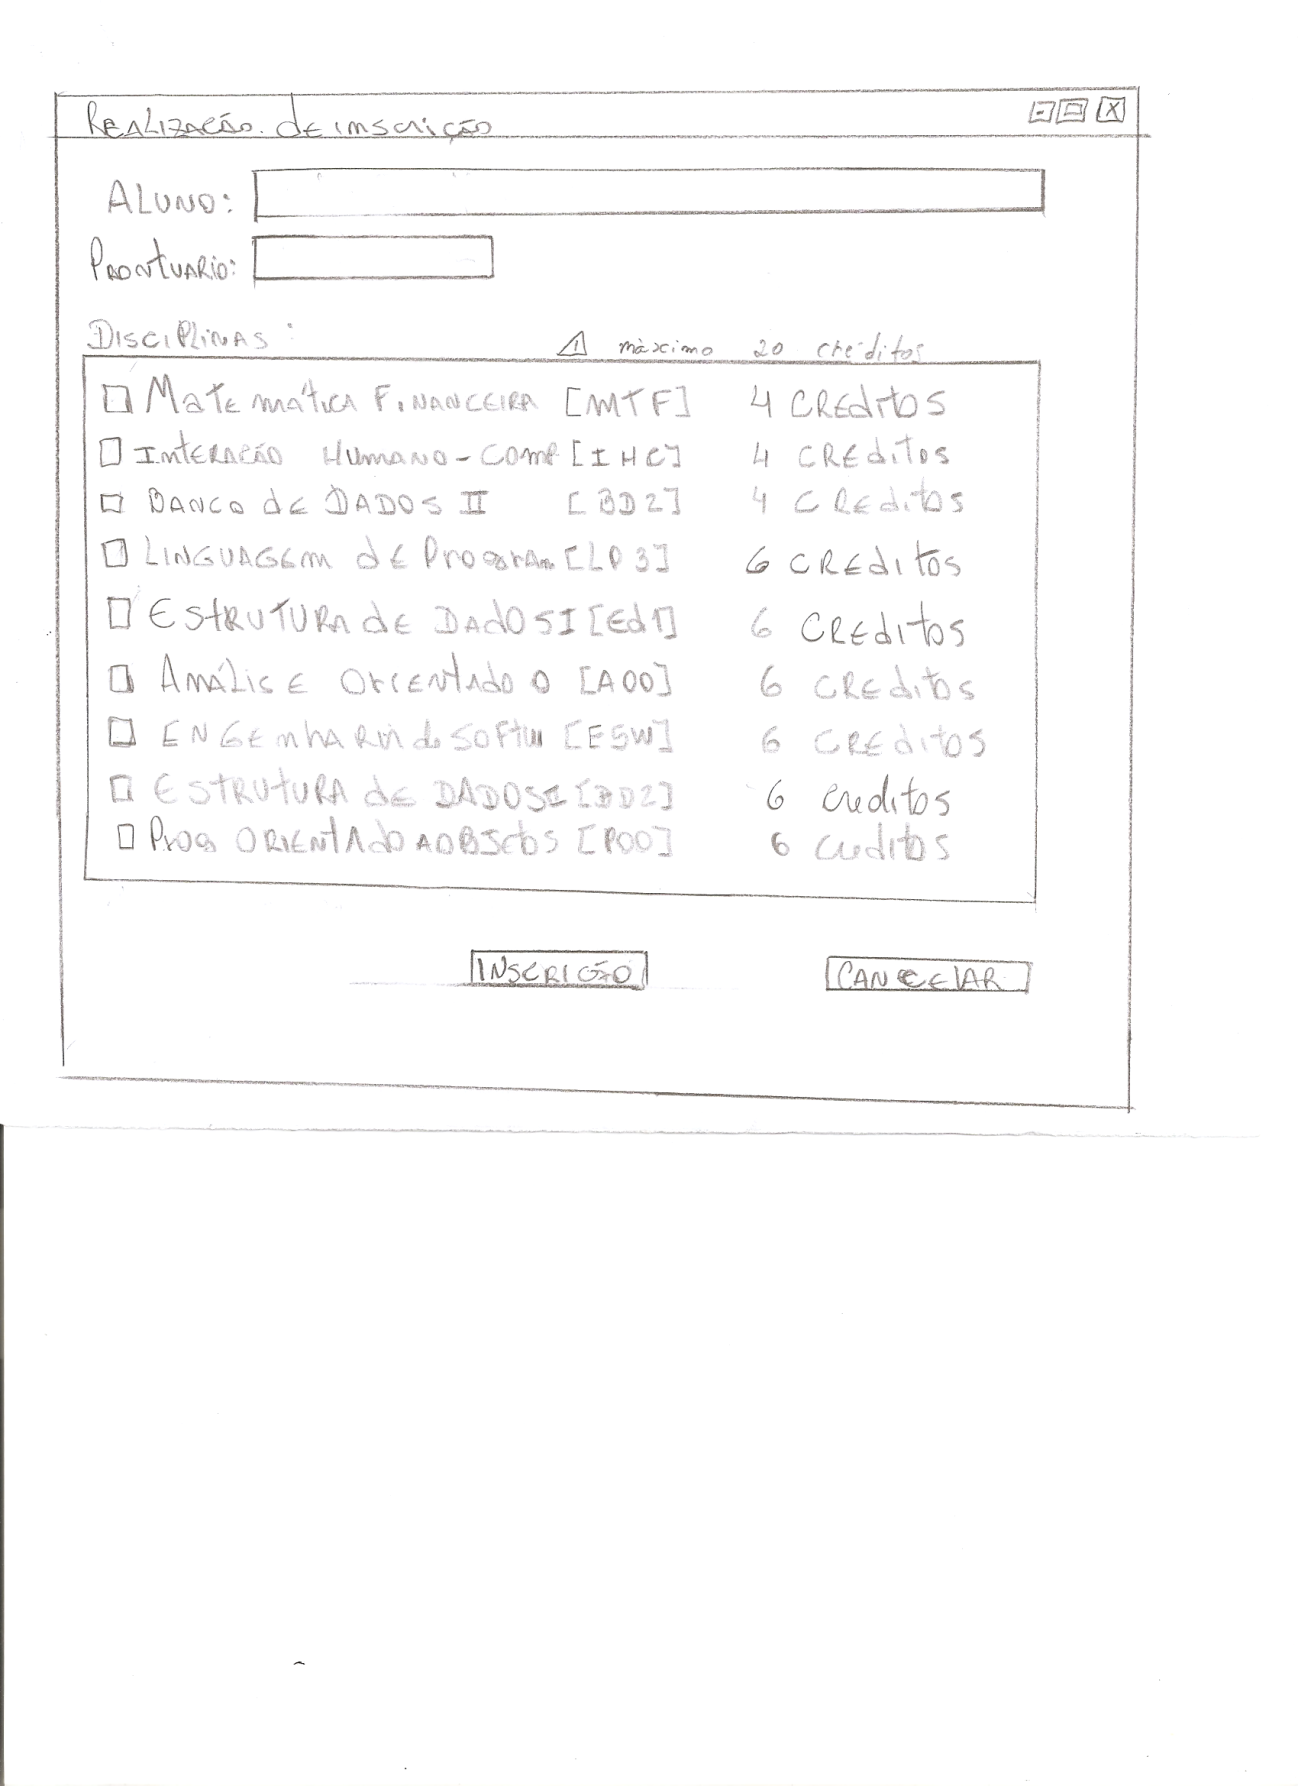 Realização de inscrição
- X
Aluno:
Prontuario:
Disciplinas:
! màximo 20 créditos
Matemática Financeira [MTF] 4 creditos
Interação Humano-Comp [IHC] 4 creditos
Banco de Dados II [BD2] 4 creditos
Linguagem de Program [LP3] 6 creditos
Estrutura de Dados I [Ed1] 6 creditos
Análise Orientado O [AOO] 6 creditos
Engenharia de Softw [ESW] 6 creditos
Estrutura de Dados [BD2] 6 creditos
Prog Orientado a Objetos [POO] 6 creditos
Inscrição Cancelar